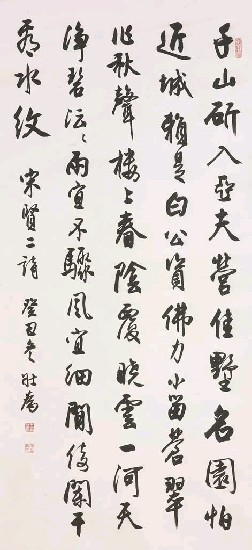 山斫入亞夫營佳墅名園怕
近城猶是白公資佛力小留蒼翠
作秋聲樓上春陰覆曉雲一河天
淨碧沄沄雨宜不驟風宜細閒倚闌干
看水紋
宋賢二詩 癸丑冬 壯為